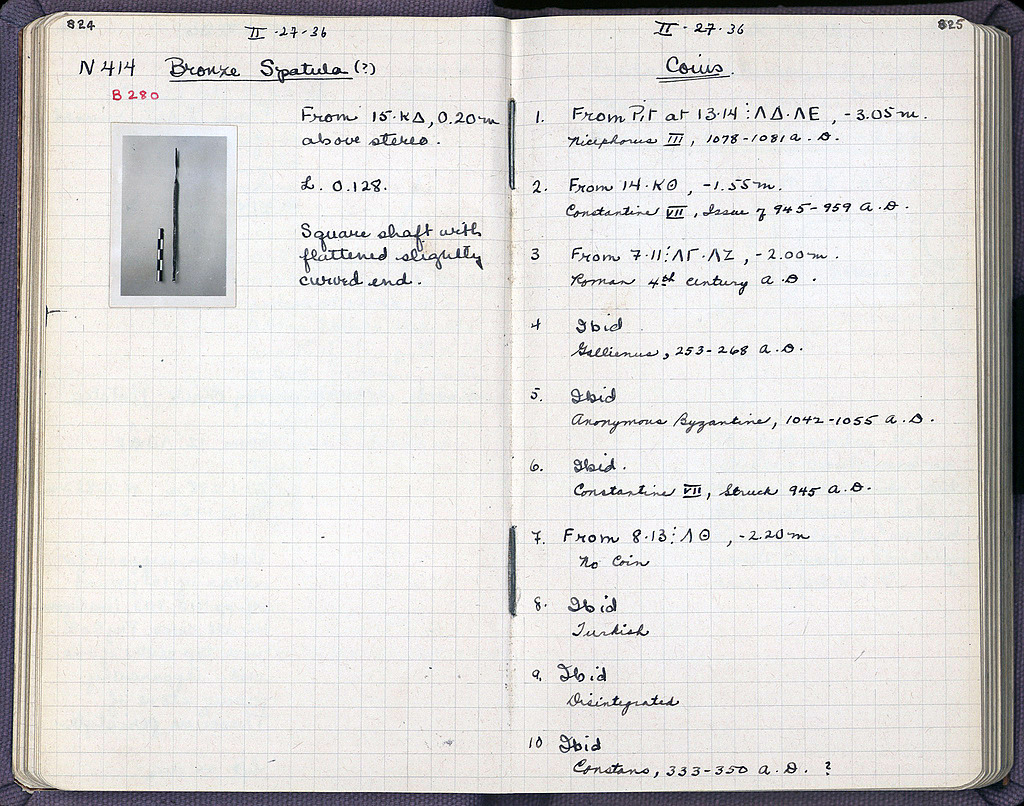 824
II-27-36
N 414 Bronze Spatula (?)
B 280
From 15·ΚΔ, 0.20m
above stereo.
L. 0.128.
Square shaft with
flattened slightly
curved end.
825
II-27-36
Coins.
1. From Pit at 13·14⋮ΛΔ·ΛΕ, -3.05m.
Nicephorus III, 1078-1081 a.D.
2. From 14·ΚΘ, -1.55m.
Constantine VII, Issue of 945-959 A.D.
3 From 7·11⋮ΛΓ·ΛΖ, -2.00m.
Roman 4th century A.D.
4 Ibid
Gallienus, 253-268 A.D.
5. Ibid
Anonymous Byzantine, 1042-1055 A.D.
6. Ibid.
Constantine VII, Struck 945 A.D.
7. From 8·13⋮ΛΘ, -2.20m
No Coin
8. Ibid
Turkish
9. Ibid
Disintegrated
10 Ibid
Constans, 333-350 A.D. ?